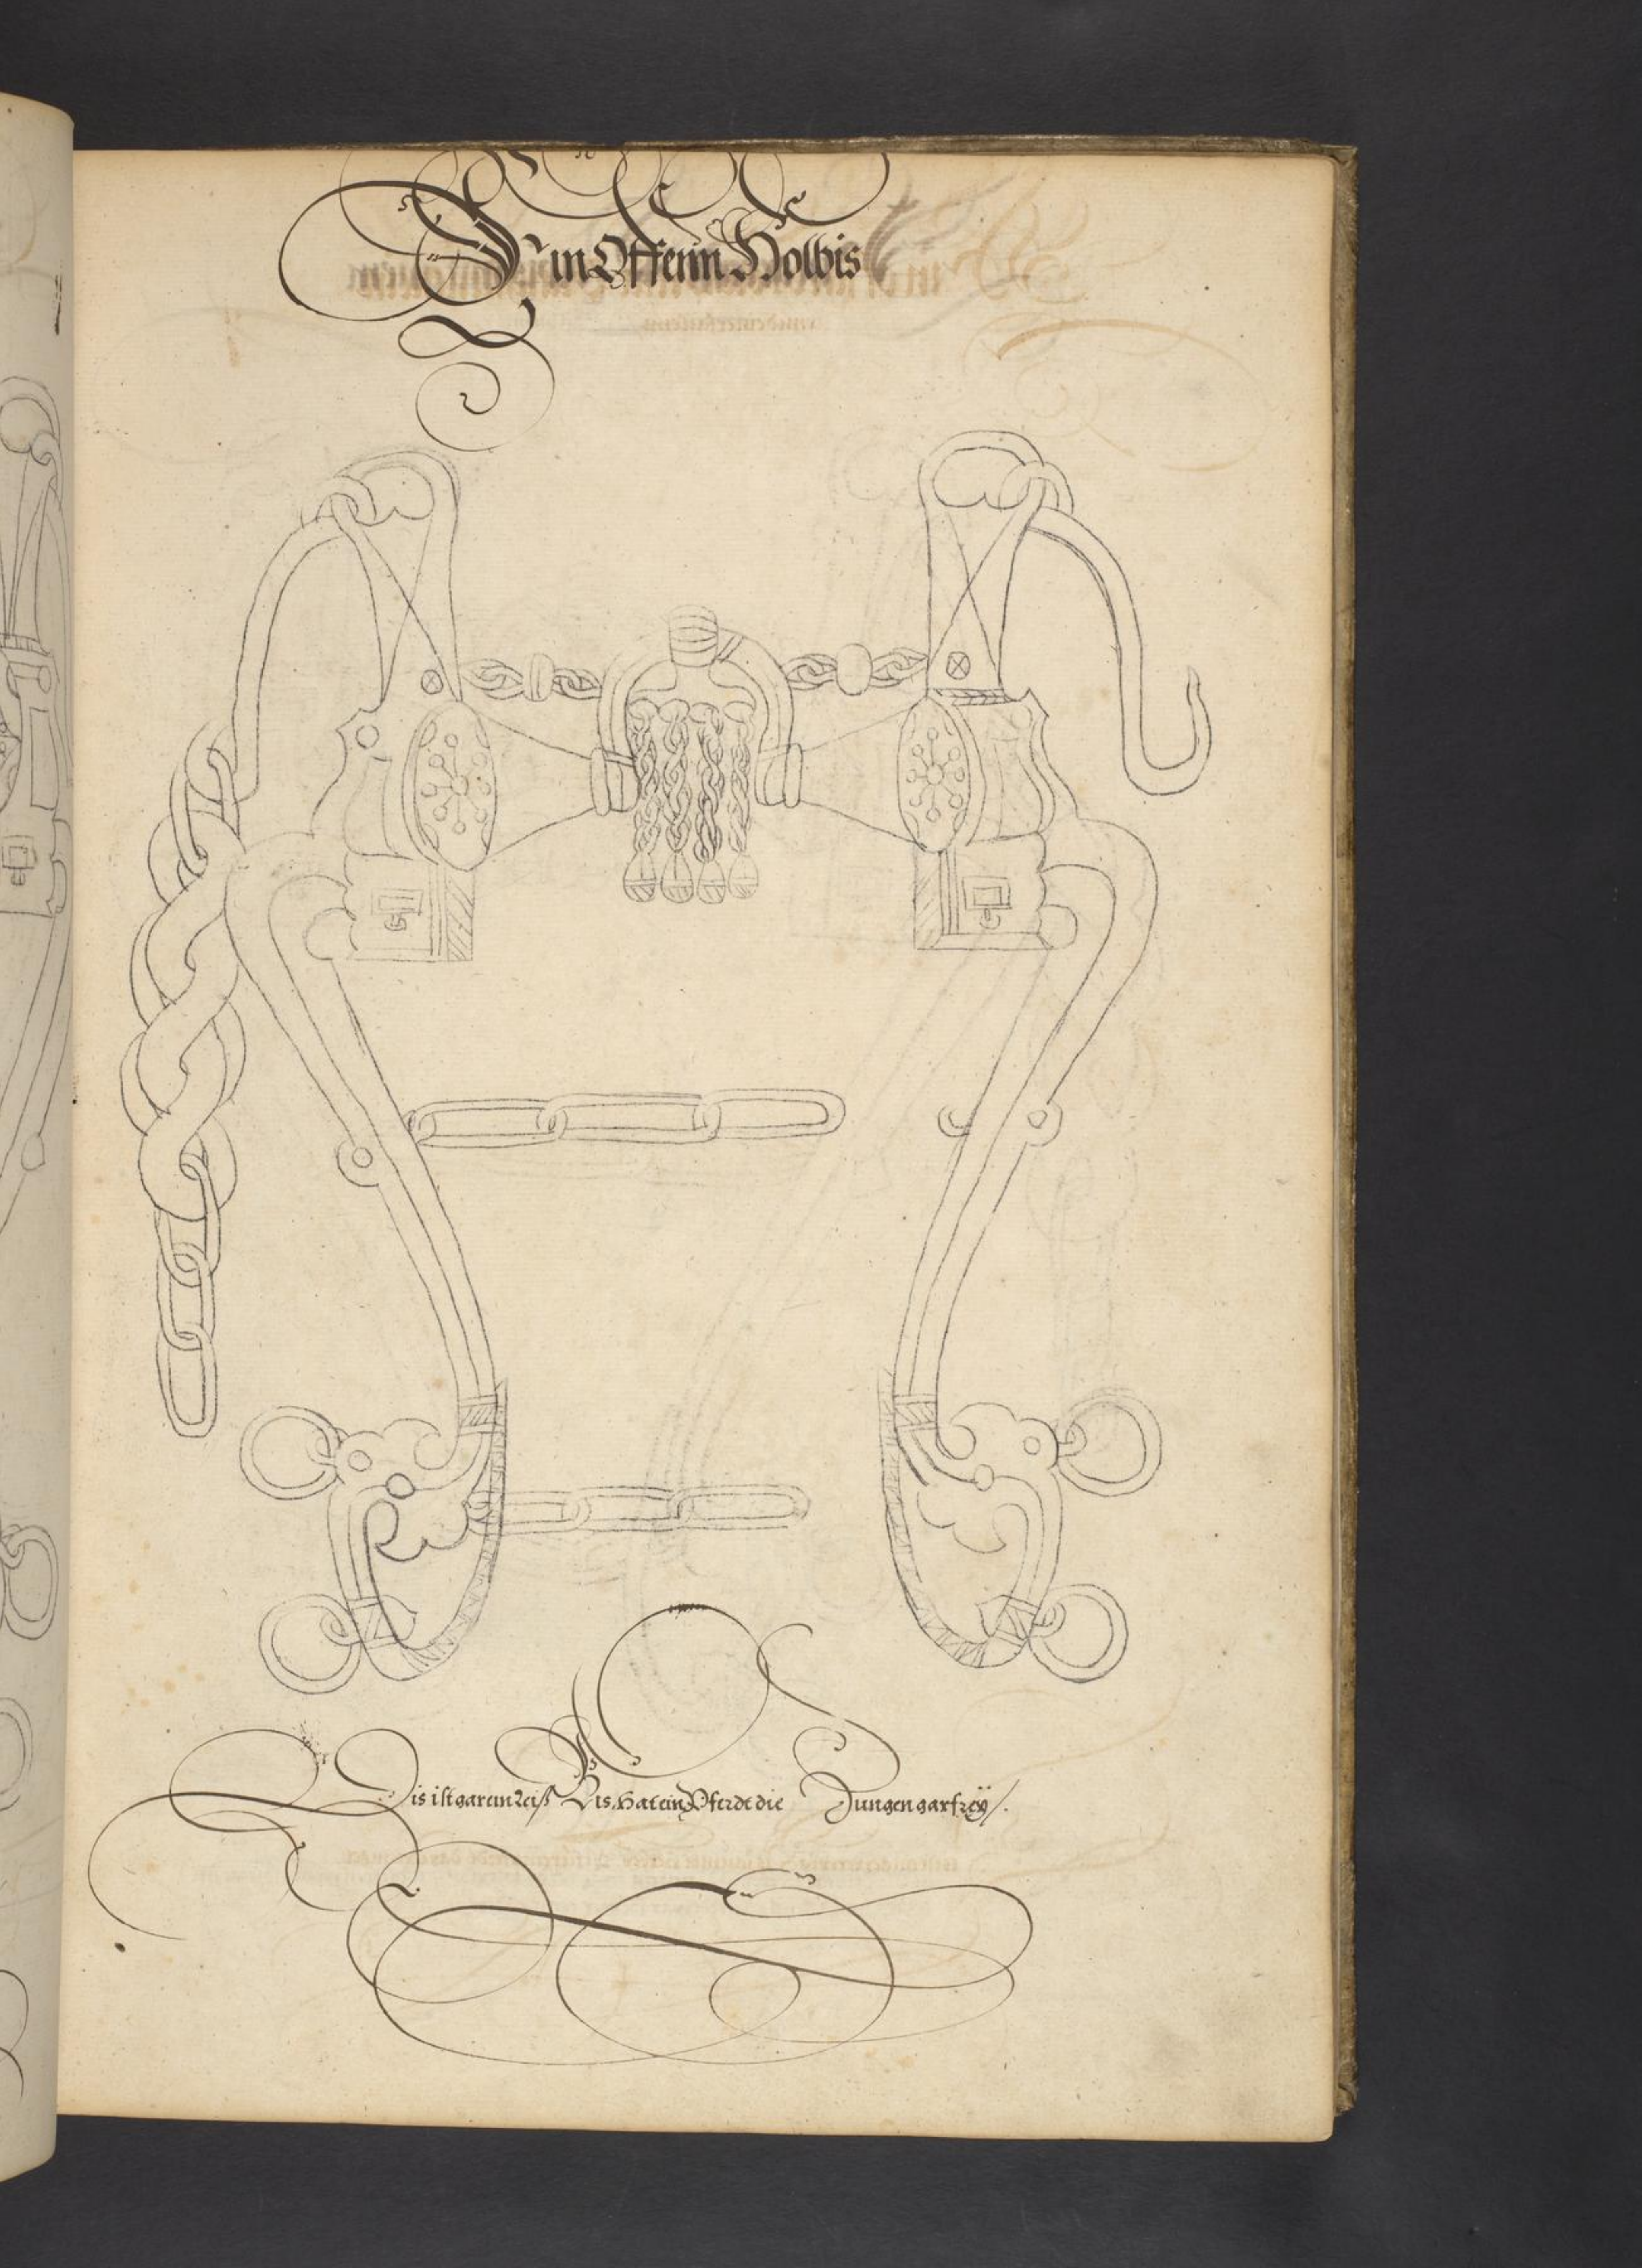 Ein Offenn Holbis
Dis ist gar ein Leiß Bis, hat ein Pferdt die Zungen gar freÿ /.